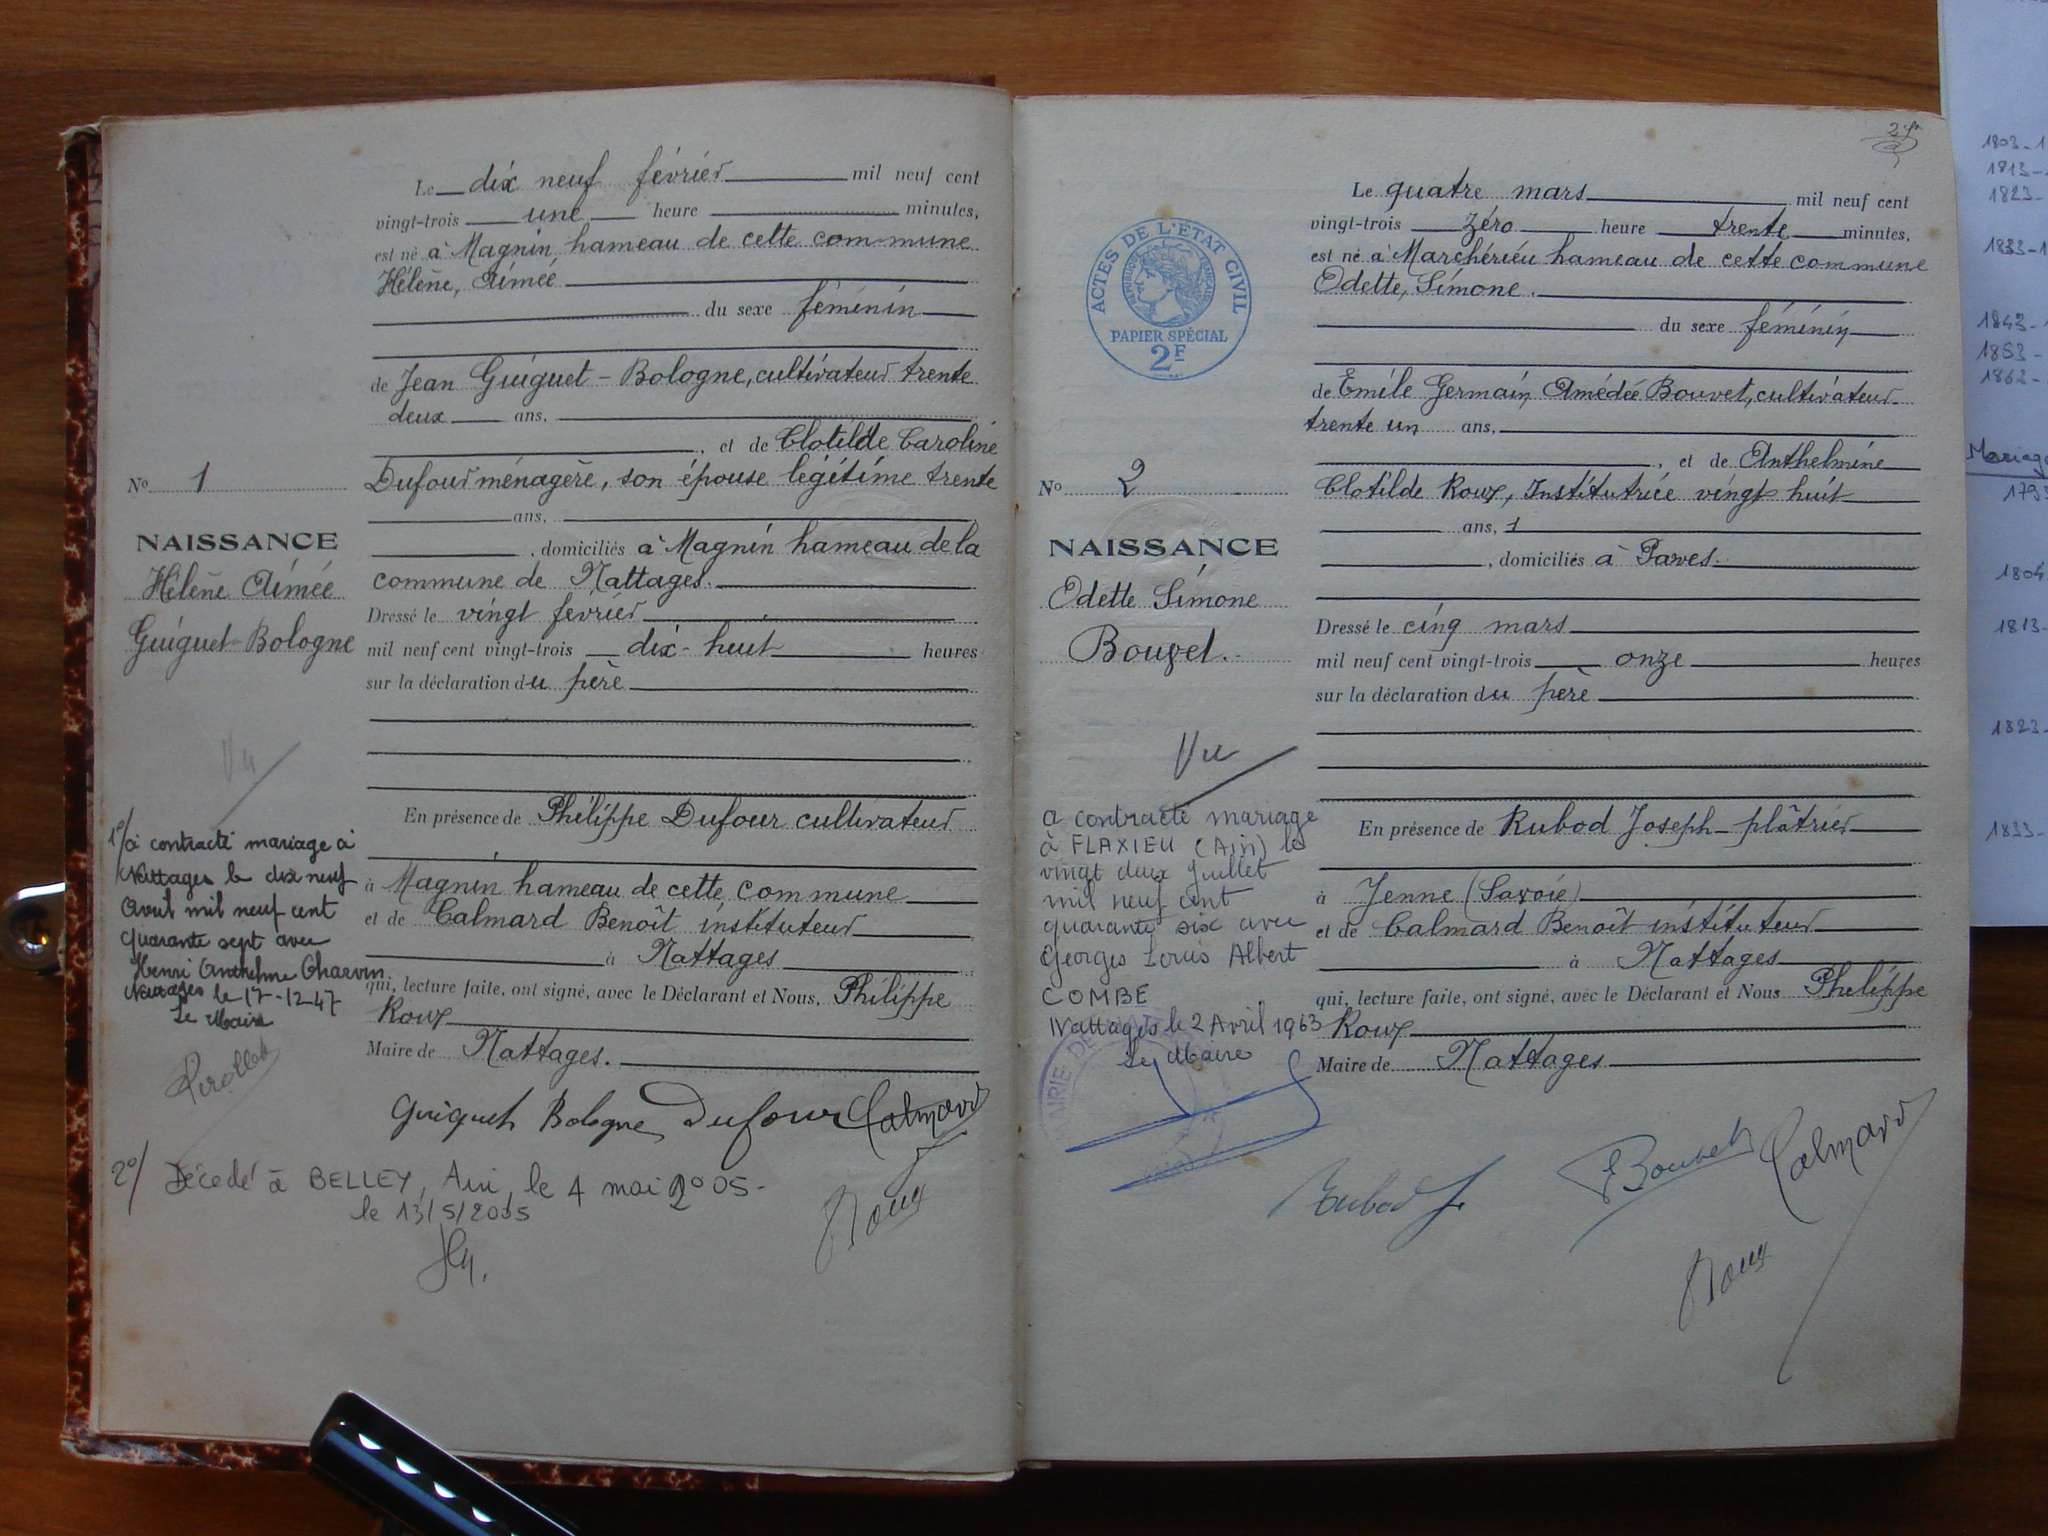 Le dix neuf février mil neuf cent
vingt-trois une heure minutes,
est né à Magnin hameau de cette commune
Hélène, Aimée
du sexe féminin
de Jean Guiguet-Bologne, cultivateur trente
deux ans,
, et de Clotilde Caroline
Dufour ménagère, son épouse légitime trente
ans,
, domiciliés à Magnin hameau de la
commune de Nattages.
Dressé le vingt février
mil neuf cent vingt-trois dix-huit heures
sur la déclaration du père
En présence de Philippe Dufour cultivateur
à Magnin hameau de cette commune
et de Calmard Benoît instituteur
à Nattages
qui, lecture faite, ont signé, avec le Déclarant et Nous, Philippe
Roux
Maire de Nattages.
Guiguet Bologne Dufour Calmard
Roux
No 1
NAISSANCE
Hélène Aimée
Guiguet-Bologne
Vu
1°/ a contracté mariage à
Nattages le dix neuf
Avril mil neuf cent
quarante sept avec
Henri Anthelme Charvin
Nattages le 17-12-47
Le Maire
2°/ Décédé à BELLEY, Ain, le 4 mai 2005-
le 13/5/2005
2
Le quatre mars mil neuf cent
vingt-trois zéro heure trente minutes,
est né à Marchérieu hameau de cette commune
Odette, Simone.
du sexe féminin
de Emile Germain Amédée Bouvet, cultivateur
trente un ans,
, et de Anthelmine
Clotilde Roux, Institutrice vingt huit
ans, 1
, domiciliés à Parves.
Dressé le cinq mars
mil neuf cent vingt-trois onze heures
sur la déclaration du père
En présence de Rubod Joseph plâtrier
à Yenne (Savoie)
et de Calmard Benoît instituteur
à Nattages
qui, lecture faite, ont signé, avec le Déclarant et Nous Philippe
Roux
Maire de Nattages
Rubod J. Bouvet Calmard
Roux
ACTES DE L'ÉTAT CIVIL
PAPIER SPÉCIAL
2F
No 2
NAISSANCE
Odette Simone
Bouvet.
Vu
a contracté mariage
à FLAXIEU (Ain) le
vingt deux Juillet
mil neuf cent
quarante six avec
Georges Louis Albert
COMBE
Nattages le 2 Avril 1963
Le Maire
MAIRIE DE
1803-1
1813-
1823-
1833-1
1843-
1853-
1863-
Mariage
1793
1804
1813-
1823-
1833-